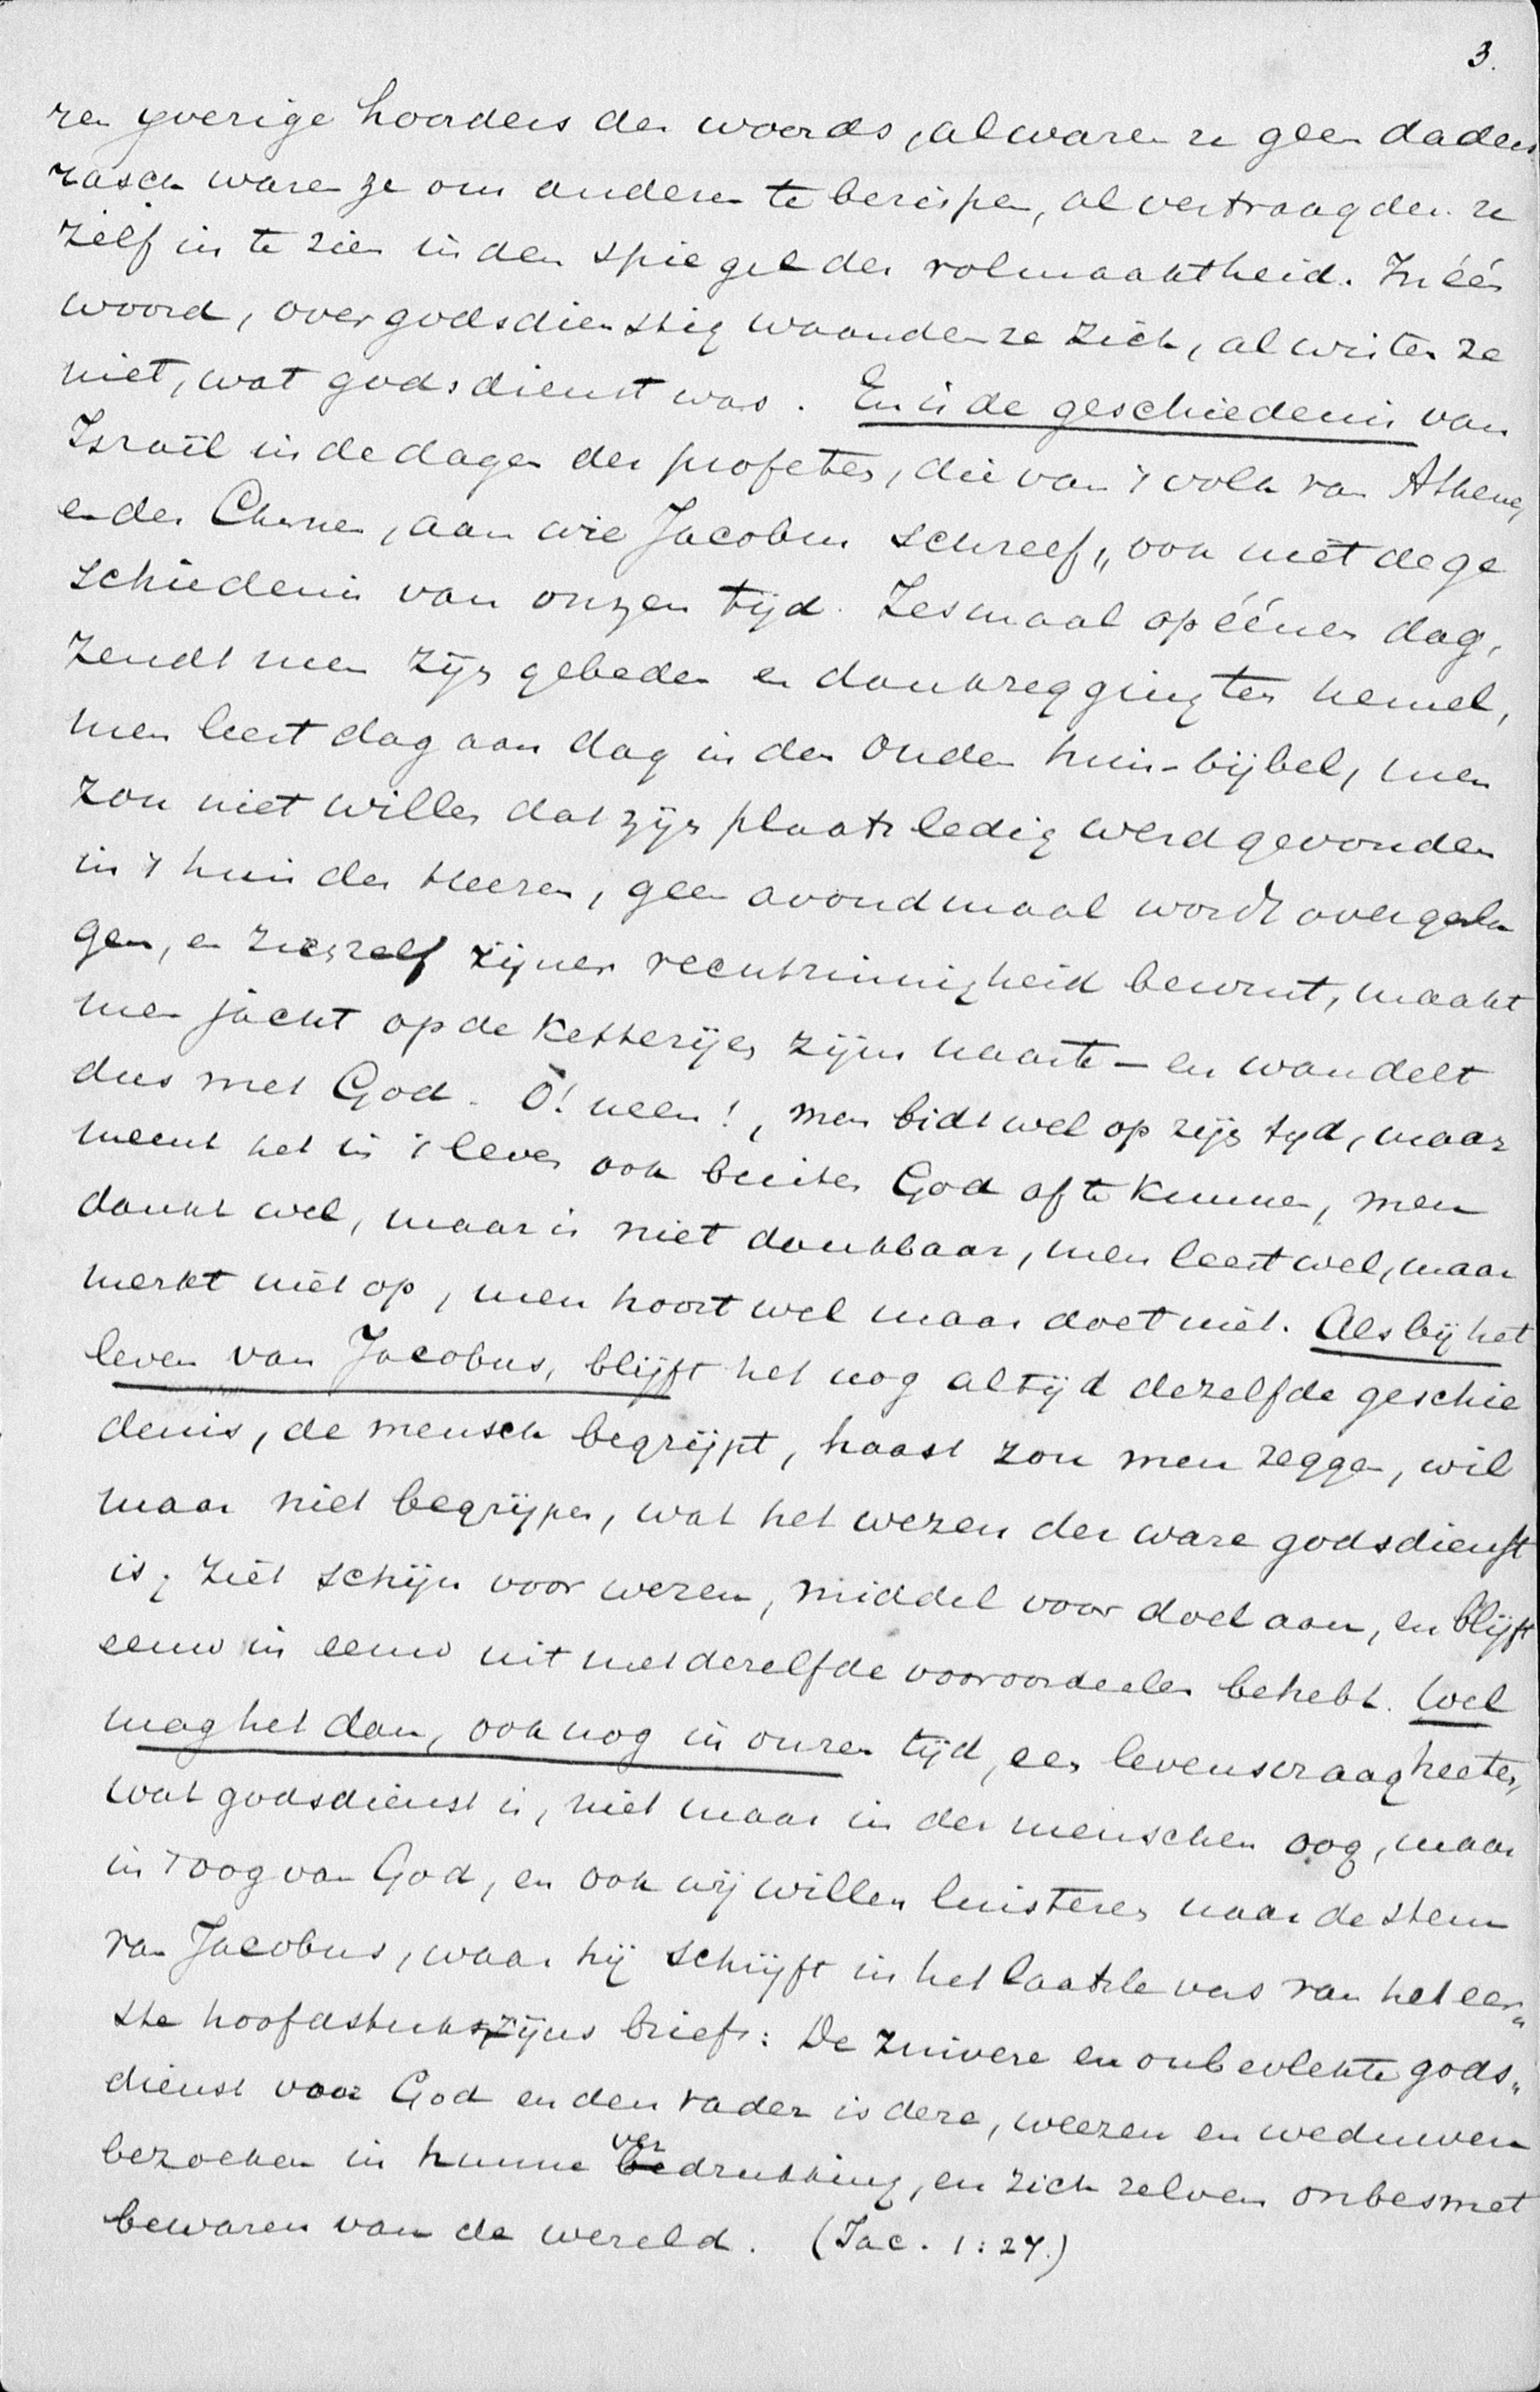 3.
ren yverige hoorders des woords, al waren ze geen daders
rasch waren ze om anderen te berispen, al vertraagden ze
zelf in te zien in den spiegel der volmaaktheid. In één
woord, overgodsdienstig waanden ze zich, al wisten ze
niet, wat godsdienst was. En is de geschiedenis van
Israël in de dagen der profeten, die van 't volk van Athene,
en der Chrnen, aan wie Jacobus schreef, ook niet de ge
schiedenis van onzen tijd. Zesmaal op éénen dag,
zendt men zijn gebeden en dankzegging ten hemel,
men leest dag aan dag in den ouden huis-bijbel, men
zou niet willen dat zijn plaats ledig werd gevonden
in 't huis des Heeren, geen avondmaal wordt overgesla
gen, en zich zelf zijner rechtzinnigheid bewust, maakt
men jacht op de ketterijen zijns naaste - en wandelt
dus met God. O! neen!, men bidt wel op zijn tyd, maar
meent het in 't leven ook buiten God af te kunnen, men
dankt wel, maar is niet dankbaar, men leest wel, maar
merkt niet op, men hoort wel maar doet niet. Als bij het
leven van Jacobus, blijft het nog altijd dezelfde geschie
denis, de mensch begrijpt, haast zou men zeggen, wil
maar niet begrijpen, wat het wezen der ware godsdienst
is; ziet schijn voor wezen, middel voor doel aan, en blijft
eeuw in eeuw uit met dezelfde vooroordeelen behebt. Wel
mag het dan, ook nog in onzen tijd, een levensvraag heeten,
wat godsdienst is, niet maar in der menschen oog, maar
in 't oog van God, en ook wij willen luisteren naar de stem
van Jacobus, waar hij schrijft in het laatste vers van het eer„
ste hoofdstuks zijns briefs: De zuivere en onbevlekte gods„
dienst voor God en den vader is deze, weezen en weduwen
bezoeken in hunne verdrukking, en zich zelven onbesmet
bewaren van de wereld. (Jac. 1:27.)